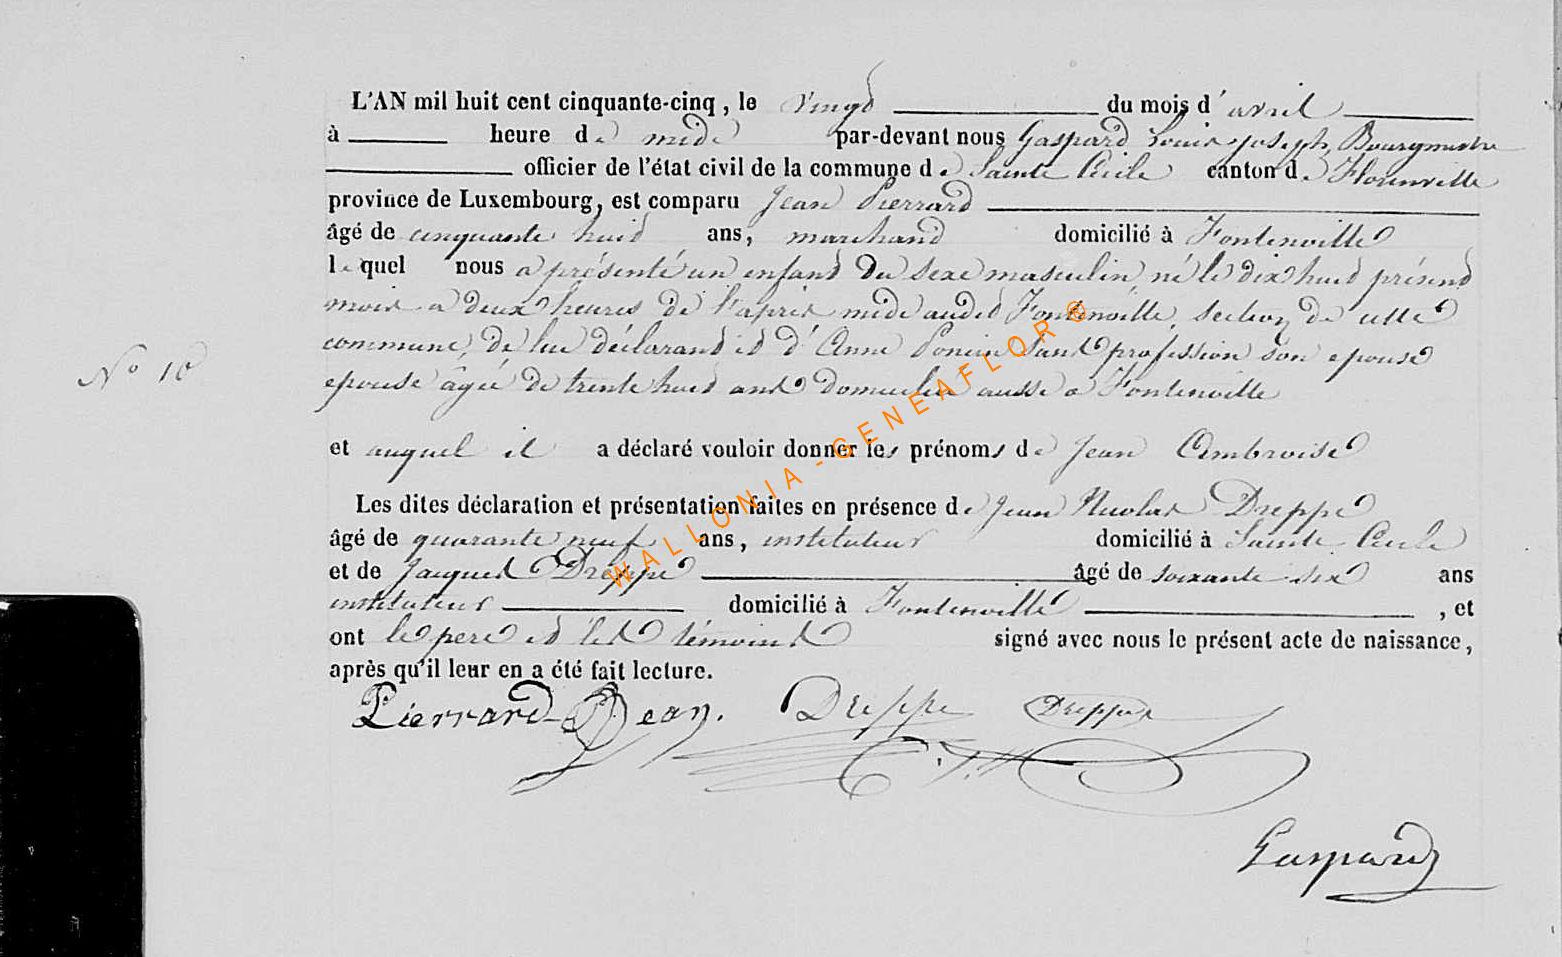 L'AN mil huit cent cinquante-cinq, le vingt du mois d'avril
à heure de midi par-devant nous Gaspard Louis joseph, Bourgmestre
officier de l'état civil de la commune de Sainte Cécile canton de Florenville
province de Luxembourg, est comparu Jean Pierrard
âgé de cinquante huit ans, marchand domicilié à Fontenoille
lequel nous a présenté un enfant du sexe masculin, né le dix huit présent
mois a deux heures de l'après midi audit Fontenoille, section de cette
N° 10
commune, de lui déclarant et d'Anne Poncin sans profession son epouse
epouse âgée de trente huit ans domiciliée aussi a Fontenoille
et auquel il a déclaré vouloir donner les prénoms de Jean Ambroise
Les dites déclaration et présentation faites en présence de Jean Nicolas Dreppe
âgé de quarante neuf ans, instituteur domicilié à Sainte Cécile
et de Jacques Dreppe âgé de soixante six ans
instituteur domicilié à Fontenoille , et
ont le pere et les témoins signé avec nous le présent acte de naissance,
après qu'il leur en a été fait lecture.
Pierrard Jean. Dreppe Dreppe
Gaspard
WALLONIA-GENEAFLOR ©